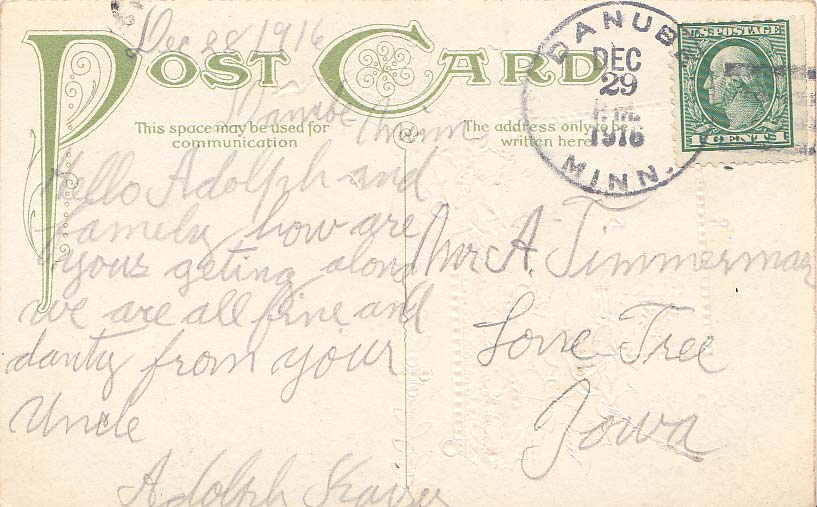 Dec 28 1916
POST CARD
Danube Minn
This space may be used for
communication
Hello Adolph and
family how are
yous geting alond
we are all fine and
danty from your
Uncle
Adolph
The address only to be
written here
DANUBE
DEC
29
1916
MINN.
U.S. POSTAGE
1 CENTS 1
Mr A. Timmerman
Lone Tree
Iowa